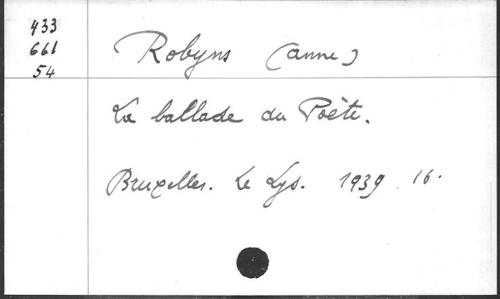 433
661
54
Robyns (Anne)
La ballade du Poète.
Bruxelles. Le Lys. 1939. 16.